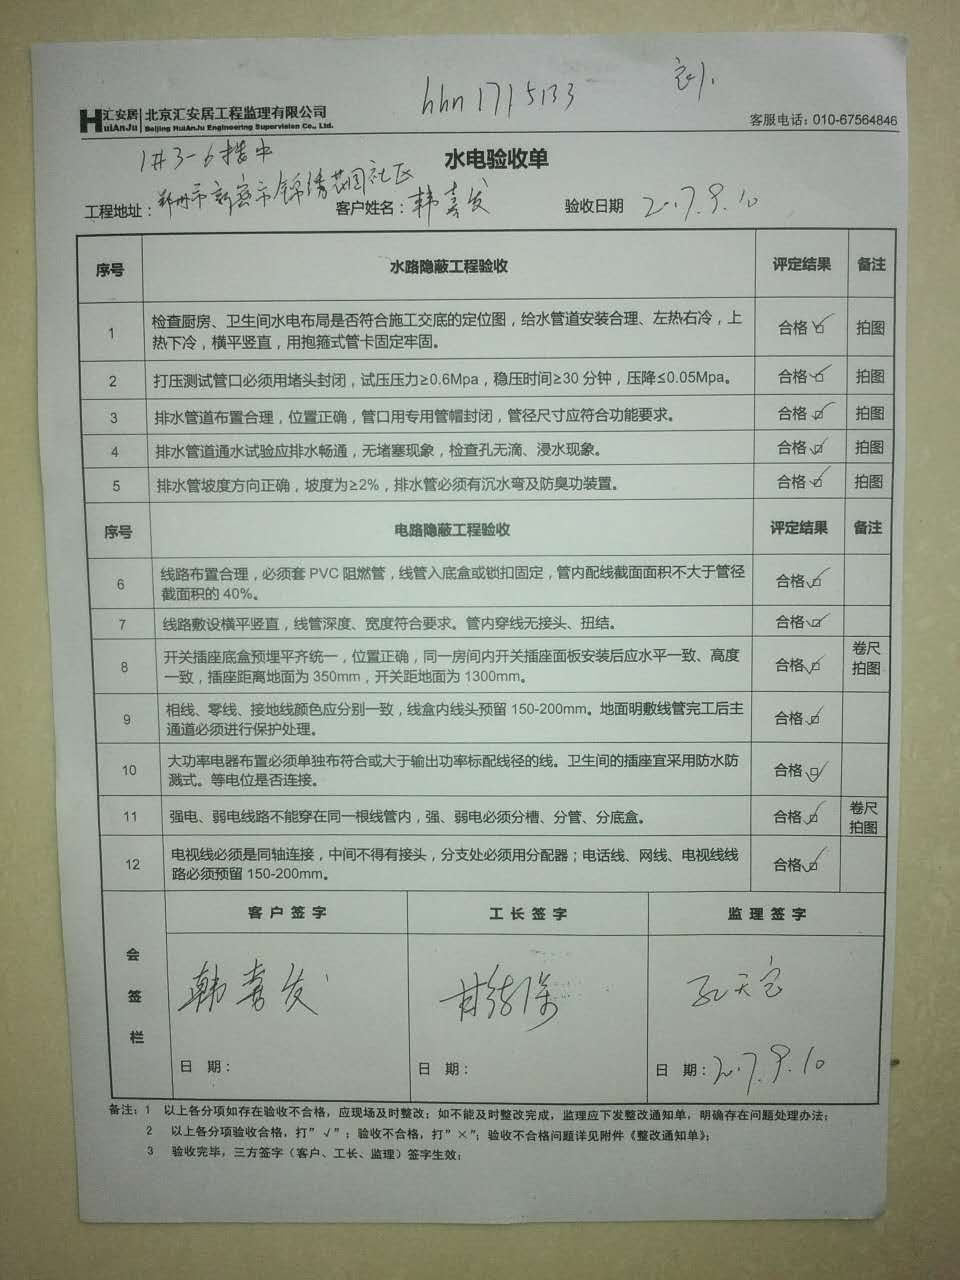 hhn1715133
汇安居 北京汇安居工程监理有限公司
HuiAnJu Beijing HuiAnJu Engineering Supervision Co., Ltd.
客服电话：010-67564846
水电验收单
1#3-6楼中
工程地址：郑州市新密市锦绣花园社区 客户姓名：韩喜发 验收日期 2017.9.10
序号 水路隐蔽工程验收 评定结果 备注
1 检查厨房、卫生间水电布局是否符合施工交底的定位图，给水管道安装合理、左热右冷，上 合格☑ 拍图
热下冷，横平竖直，用抱箍式管卡固定牢固。
2 打压测试管口必须用堵头封闭，试压压力≥0.6Mpa，稳压时间≥30 分钟，压降≤0.05Mpa。 合格☑ 拍图
3 排水管道布置合理，位置正确，管口用专用管帽封闭，管径尺寸应符合功能要求。 合格☑ 拍图
4 排水管道通水试验应排水畅通，无堵塞现象，检查孔无滴、浸水现象。 合格☑ 拍图
5 排水管坡度方向正确，坡度为≥2%，排水管必须有沉水弯及防臭功装置。 合格☑ 拍图
序号 电路隐蔽工程验收 评定结果 备注
6 线路布置合理，必须套 PVC 阻燃管，线管入底盒或锁扣固定，管内配线截面面积不大于管径 合格☑
截面积的 40%。
7 线路敷设横平竖直，线管深度、宽度符合要求。管内穿线无接头、扭结。 合格☑
8 开关插座底盒预埋平齐统一，位置正确，同一房间内开关插座面板安装后应水平一致、高度 合格☑ 卷尺
一致，插座距离地面为 350mm，开关距地面为 1300mm。 拍图
9 相线、零线、接地线颜色应分别一致，线盒内线头预留 150-200mm。地面明敷线管完工后主 合格☑
通道必须进行保护处理。
10 大功率电器布置必须单独布符合或大于输出功率标配线径的线。卫生间的插座宜采用防水防 合格☑
溅式。等电位是否连接。
11 强电、弱电线路不能穿在同一根线管内，强、弱电必须分槽、分管、分底盒。 合格☑ 卷尺
拍图
12 电视线必须是同轴连接，中间不得有接头，分支处必须用分配器；电话线、网线、电视线线 合格☑
路必须预留 150-200mm。
会签栏 客户签字 工长签字 监理签字
韩喜发 孔天宝
日 期： 日 期： 日 期：2017.9.10
备注：1 以上各分项如存在验收不合格，应现场及时整改；如不能及时整改完成，监理应下发整改通知单，明确存在问题处理办法；
2 以上各分项验收合格，打”√”；验收不合格，打”×”；验收不合格问题详见附件《整改通知单》；
3 验收完毕，三方签字（客户、工长、监理）签字生效；